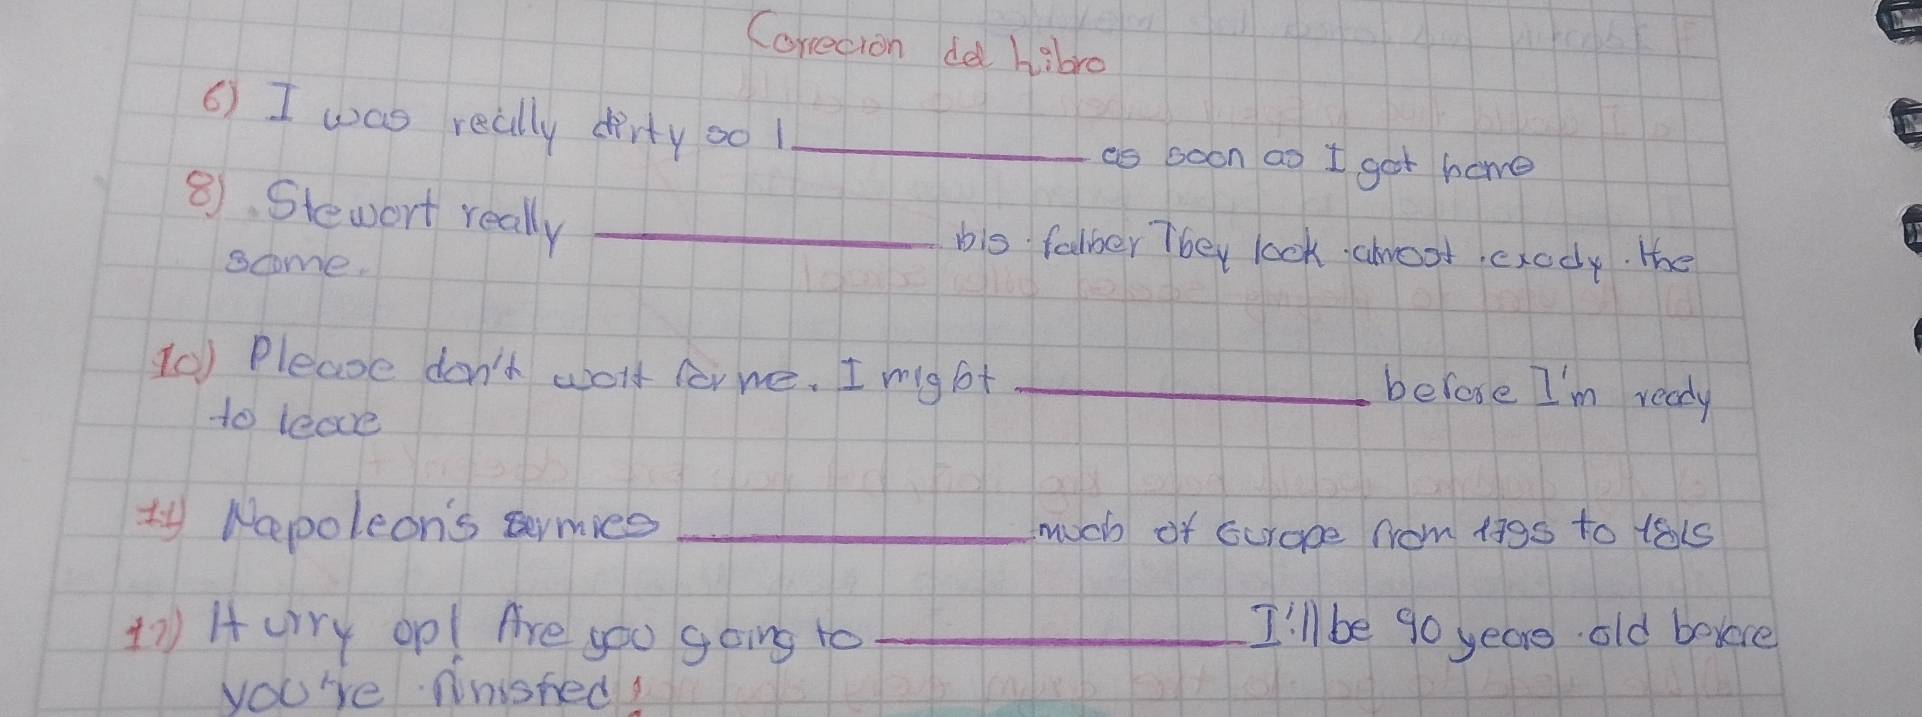 Correcion del Libro
6) I was really dirty so I __________ as soon as I got home
8) Stewart really __________ his father They look almost exacly the
same.
10) Please don't wait for me. I might __________ before I'm ready
to leave
11) Napoleon's armies __________ much of Europe from 1795 to 1815
12) Hurry up! Are you going to __________ I'll be 90 years old before
you're finished!